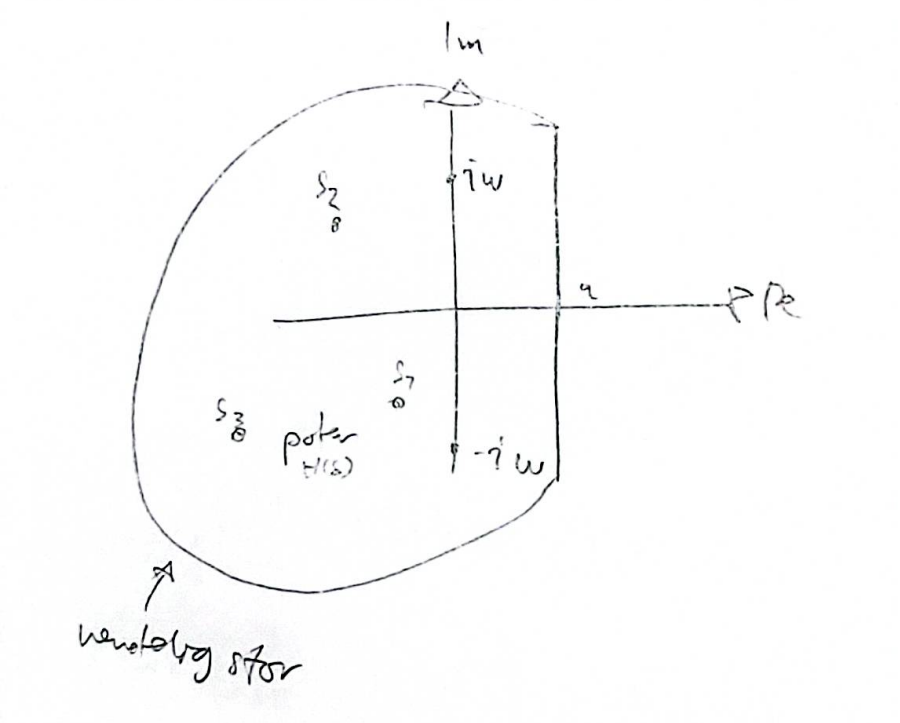 Im
iw
s2
a
Re
s1
s3
poler
H(s)
-iw
uendelig stor